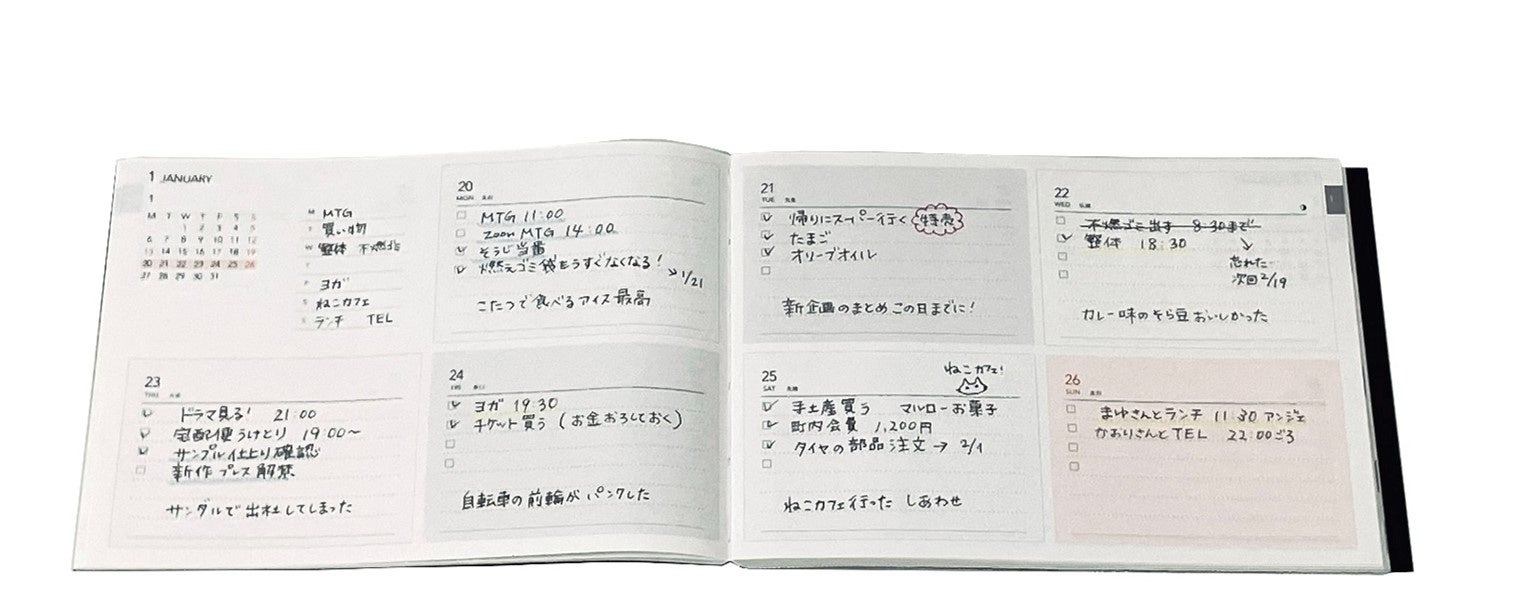 1 JANUARY
1
M T W T F S S
1 2 3 4 5
6 7 8 9 10 11 12
13 14 15 16 17 18 19
20 21 22 23 24 25 26
27 28 29 30 31
M MTG
買い物
W 整体 不燃
F ヨガ
S ねこカフェ
S ランチ TEL
20
MON 先負
MTG 11:00
zoom MTG 14:00
そうじ当番
燃えゴミ袋もうすぐなくなる! →1/21
こたつで食べるアイス最高
21
TUE
帰りにスーパー行く 特売
たまご
オリーブオイル
新企画のまとめこの日までに!
22
WED 仏滅
不燃ゴミ出す 8:30まで
整体 18:30
忘れた
次回2/19
カレー味のそら豆おいしかった
23
THU
ドラマ見る! 21:00
宅配便うけとり 19:00〜
サンプル仕上り確認
新作プレス解禁
サンダルで出社してしまった
24
FRI
ヨガ 19:30
チケット買う (お金おろしておく)
自転車の前輪がパンクした
25
SAT 先勝
ねこカフェ!
手土産買う マルローお菓子
町内会費 1,200円
タイヤの部品注文→2/1
ねこカフェ行った しあわせ
26
SUN
まゆさんとランチ 11:30 アンジェ
かおりさんとTEL 22:00ごろ